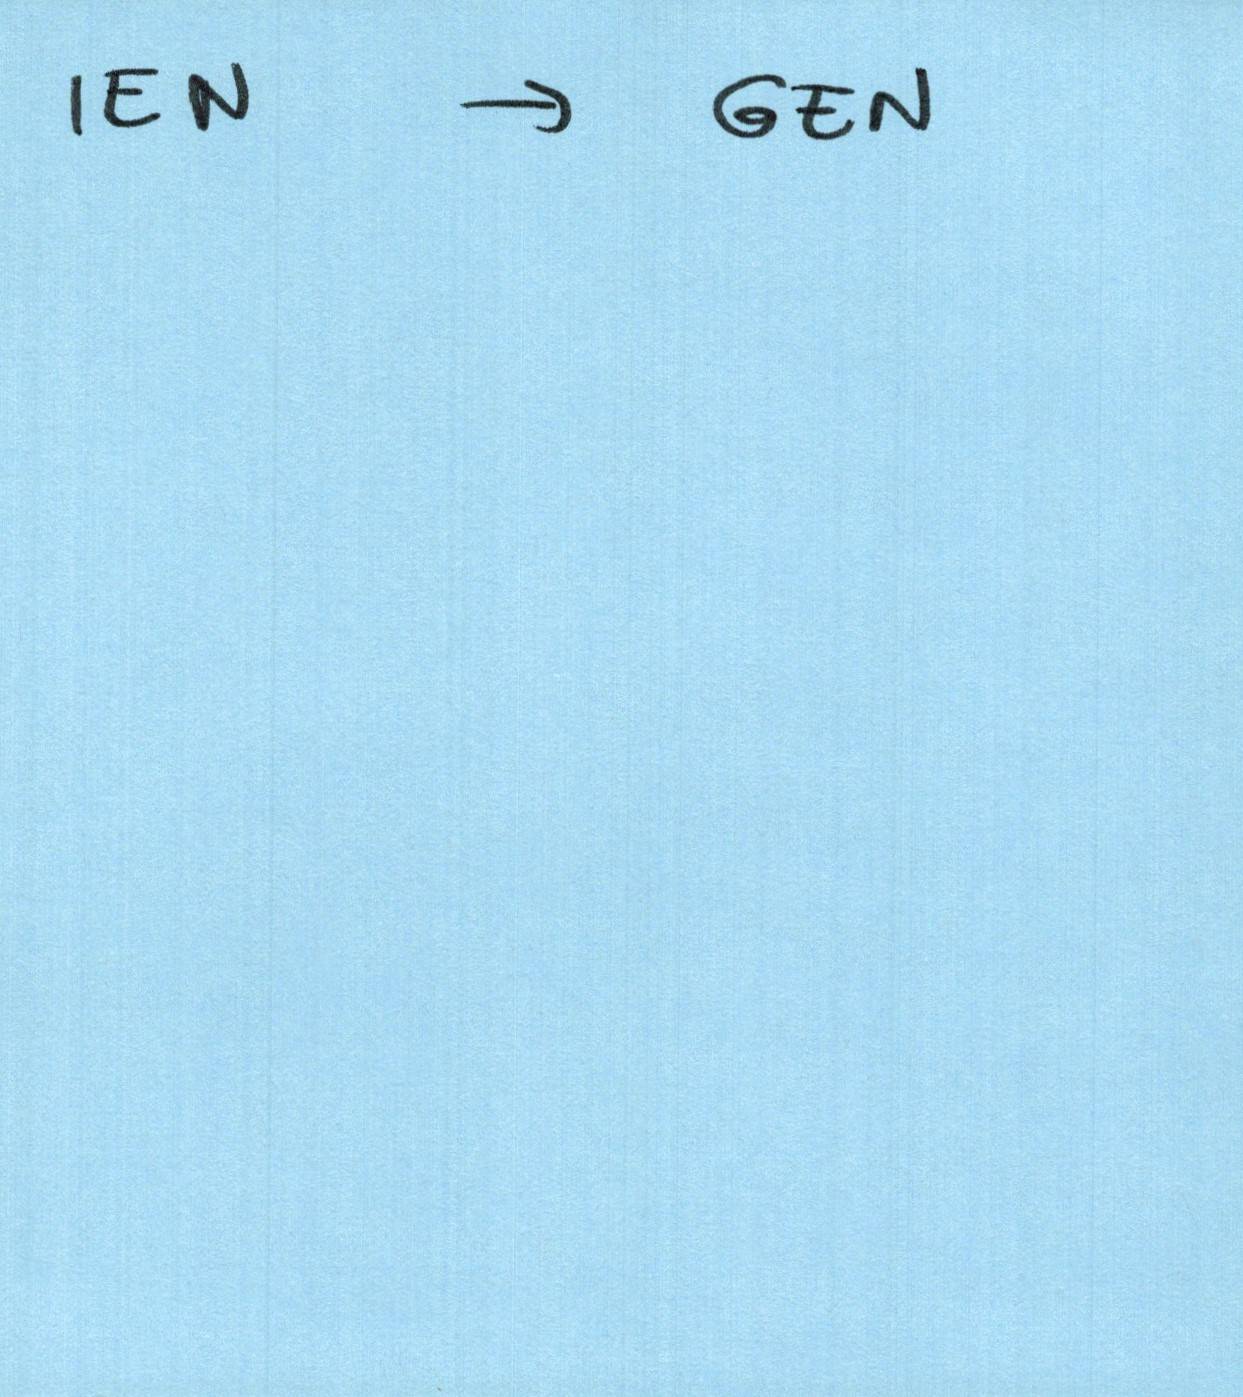 IEN → GEN